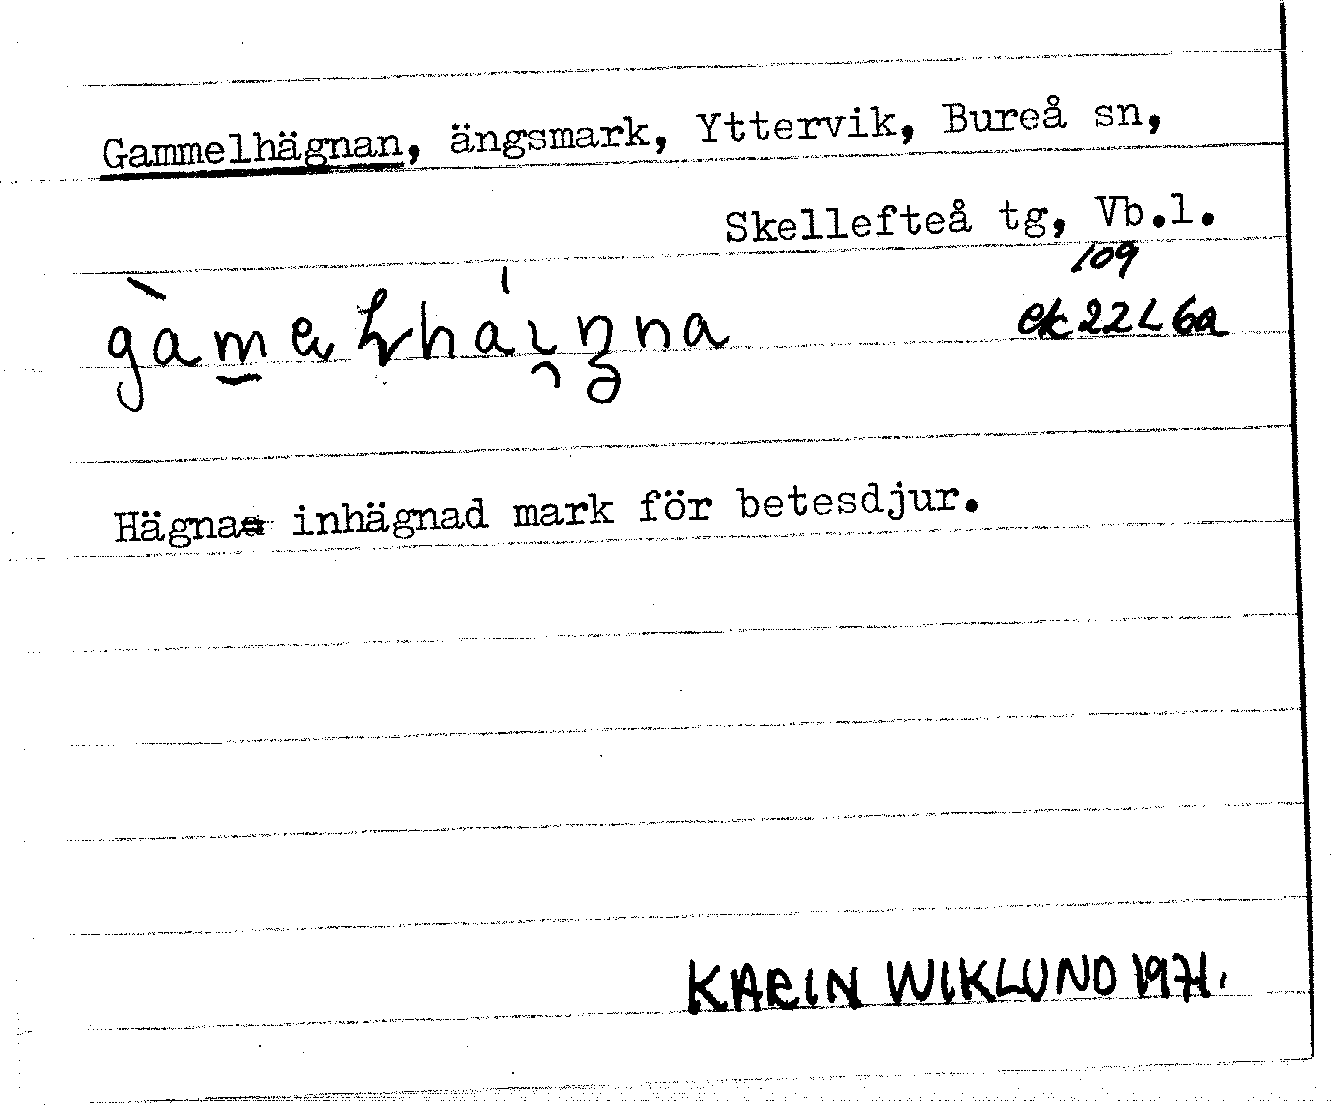 Gammelhägnan, ängsmark, Yttervik, Bureå sn,
Skellefteå tg, Vb.l.
109
ek 22L 6a
Hägna= inhägnad mark för betesdjur.
KARIN WIKLUND 1971.